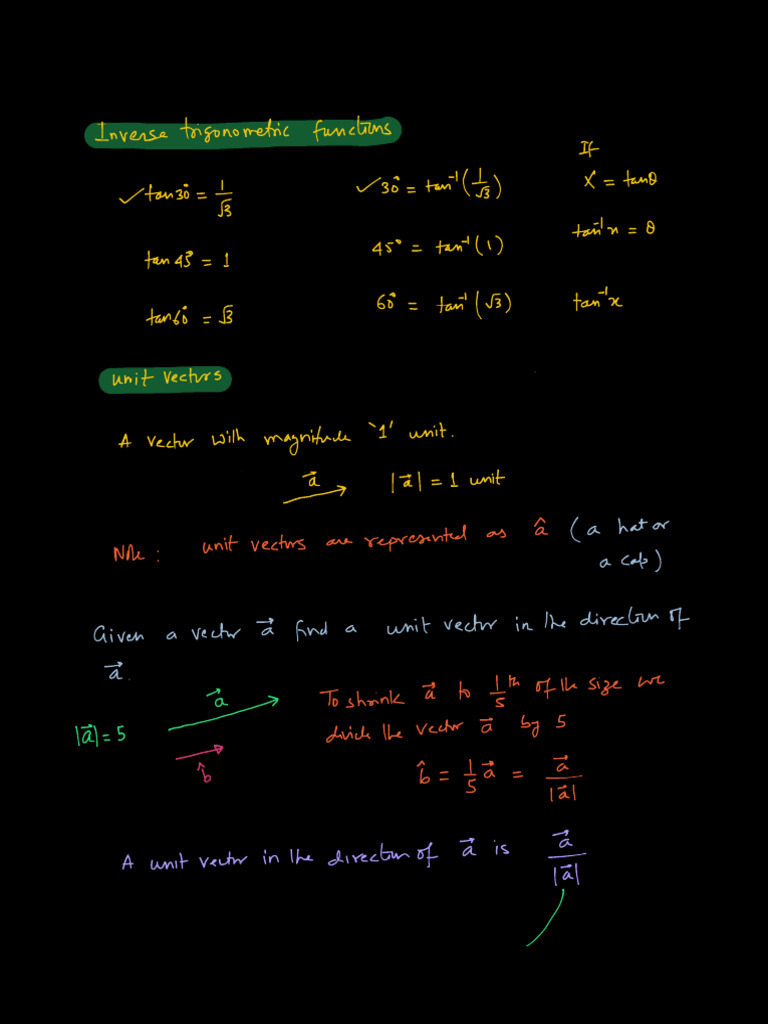 Inverse trigonometric functions
If
✓ tan30° = 1/√3
✓ 30° = tan⁻¹(1/√3)
x = tanθ
tan⁻¹x = θ
tan 45° = 1
45° = tan⁻¹(1)
tan60° = √3
60° = tan⁻¹(√3)
tan⁻¹x
unit vectors
A vector with magnitude '1' unit.
a⃗
|a⃗| = 1 unit
Note: unit vectors are represented as â (a hat or
a cap)
Given a vector a⃗ find a unit vector in the direction of
a⃗.
|a⃗| = 5
a⃗
b̂
To shrink a⃗ to 1/5 th of the size we
divide the vector a⃗ by 5
b̂ = 1/5 a⃗ = a⃗/|a⃗|
A unit vector in the direction of a⃗ is a⃗/|a⃗|